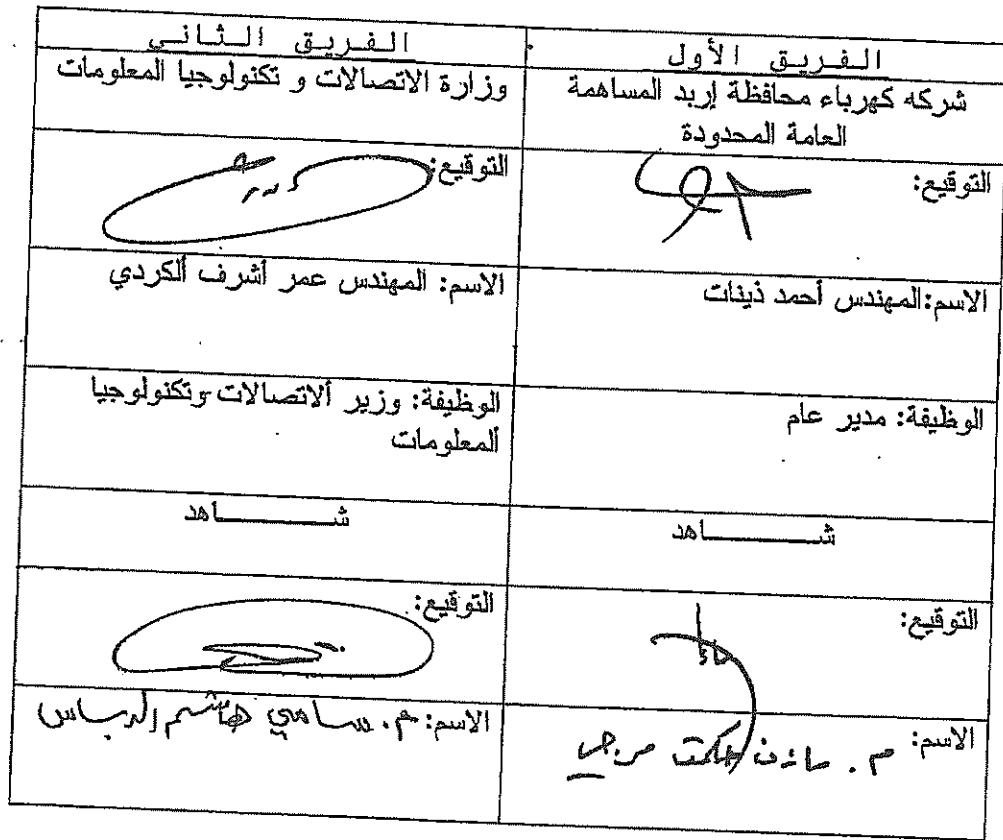 الفريق الأول
الفريق الثاني
شركه كهرباء محافظة إربد المساهمة
العامة المحدودة
وزارة الاتصالات و تكنولوجيا المعلومات
التوقيع:
التوقيع:
الاسم:المهندس أحمد ذينات
الاسم: المهندس عمر أشرف ألكردي
الوظيفة: مدير عام
الوظيفة: وزير ألاتصالات وتكنولوجيا
ألمعلومات
شــــــاهد
شــــــاهد
التوقيع:
التوقيع:
الاسم: م. مازن حكمت
الاسم: م. سامي هاشم الدباس